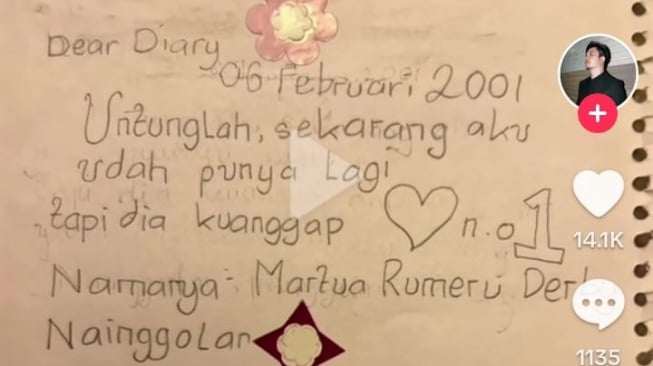 Dear Diary
06 Februari 2001
Untunglah, sekarang aku
udah punya lagi
tapi dia kuanggap ♡ n.o 1
Namanya: Martua Rumeru
Nainggolan
14.1K
1135